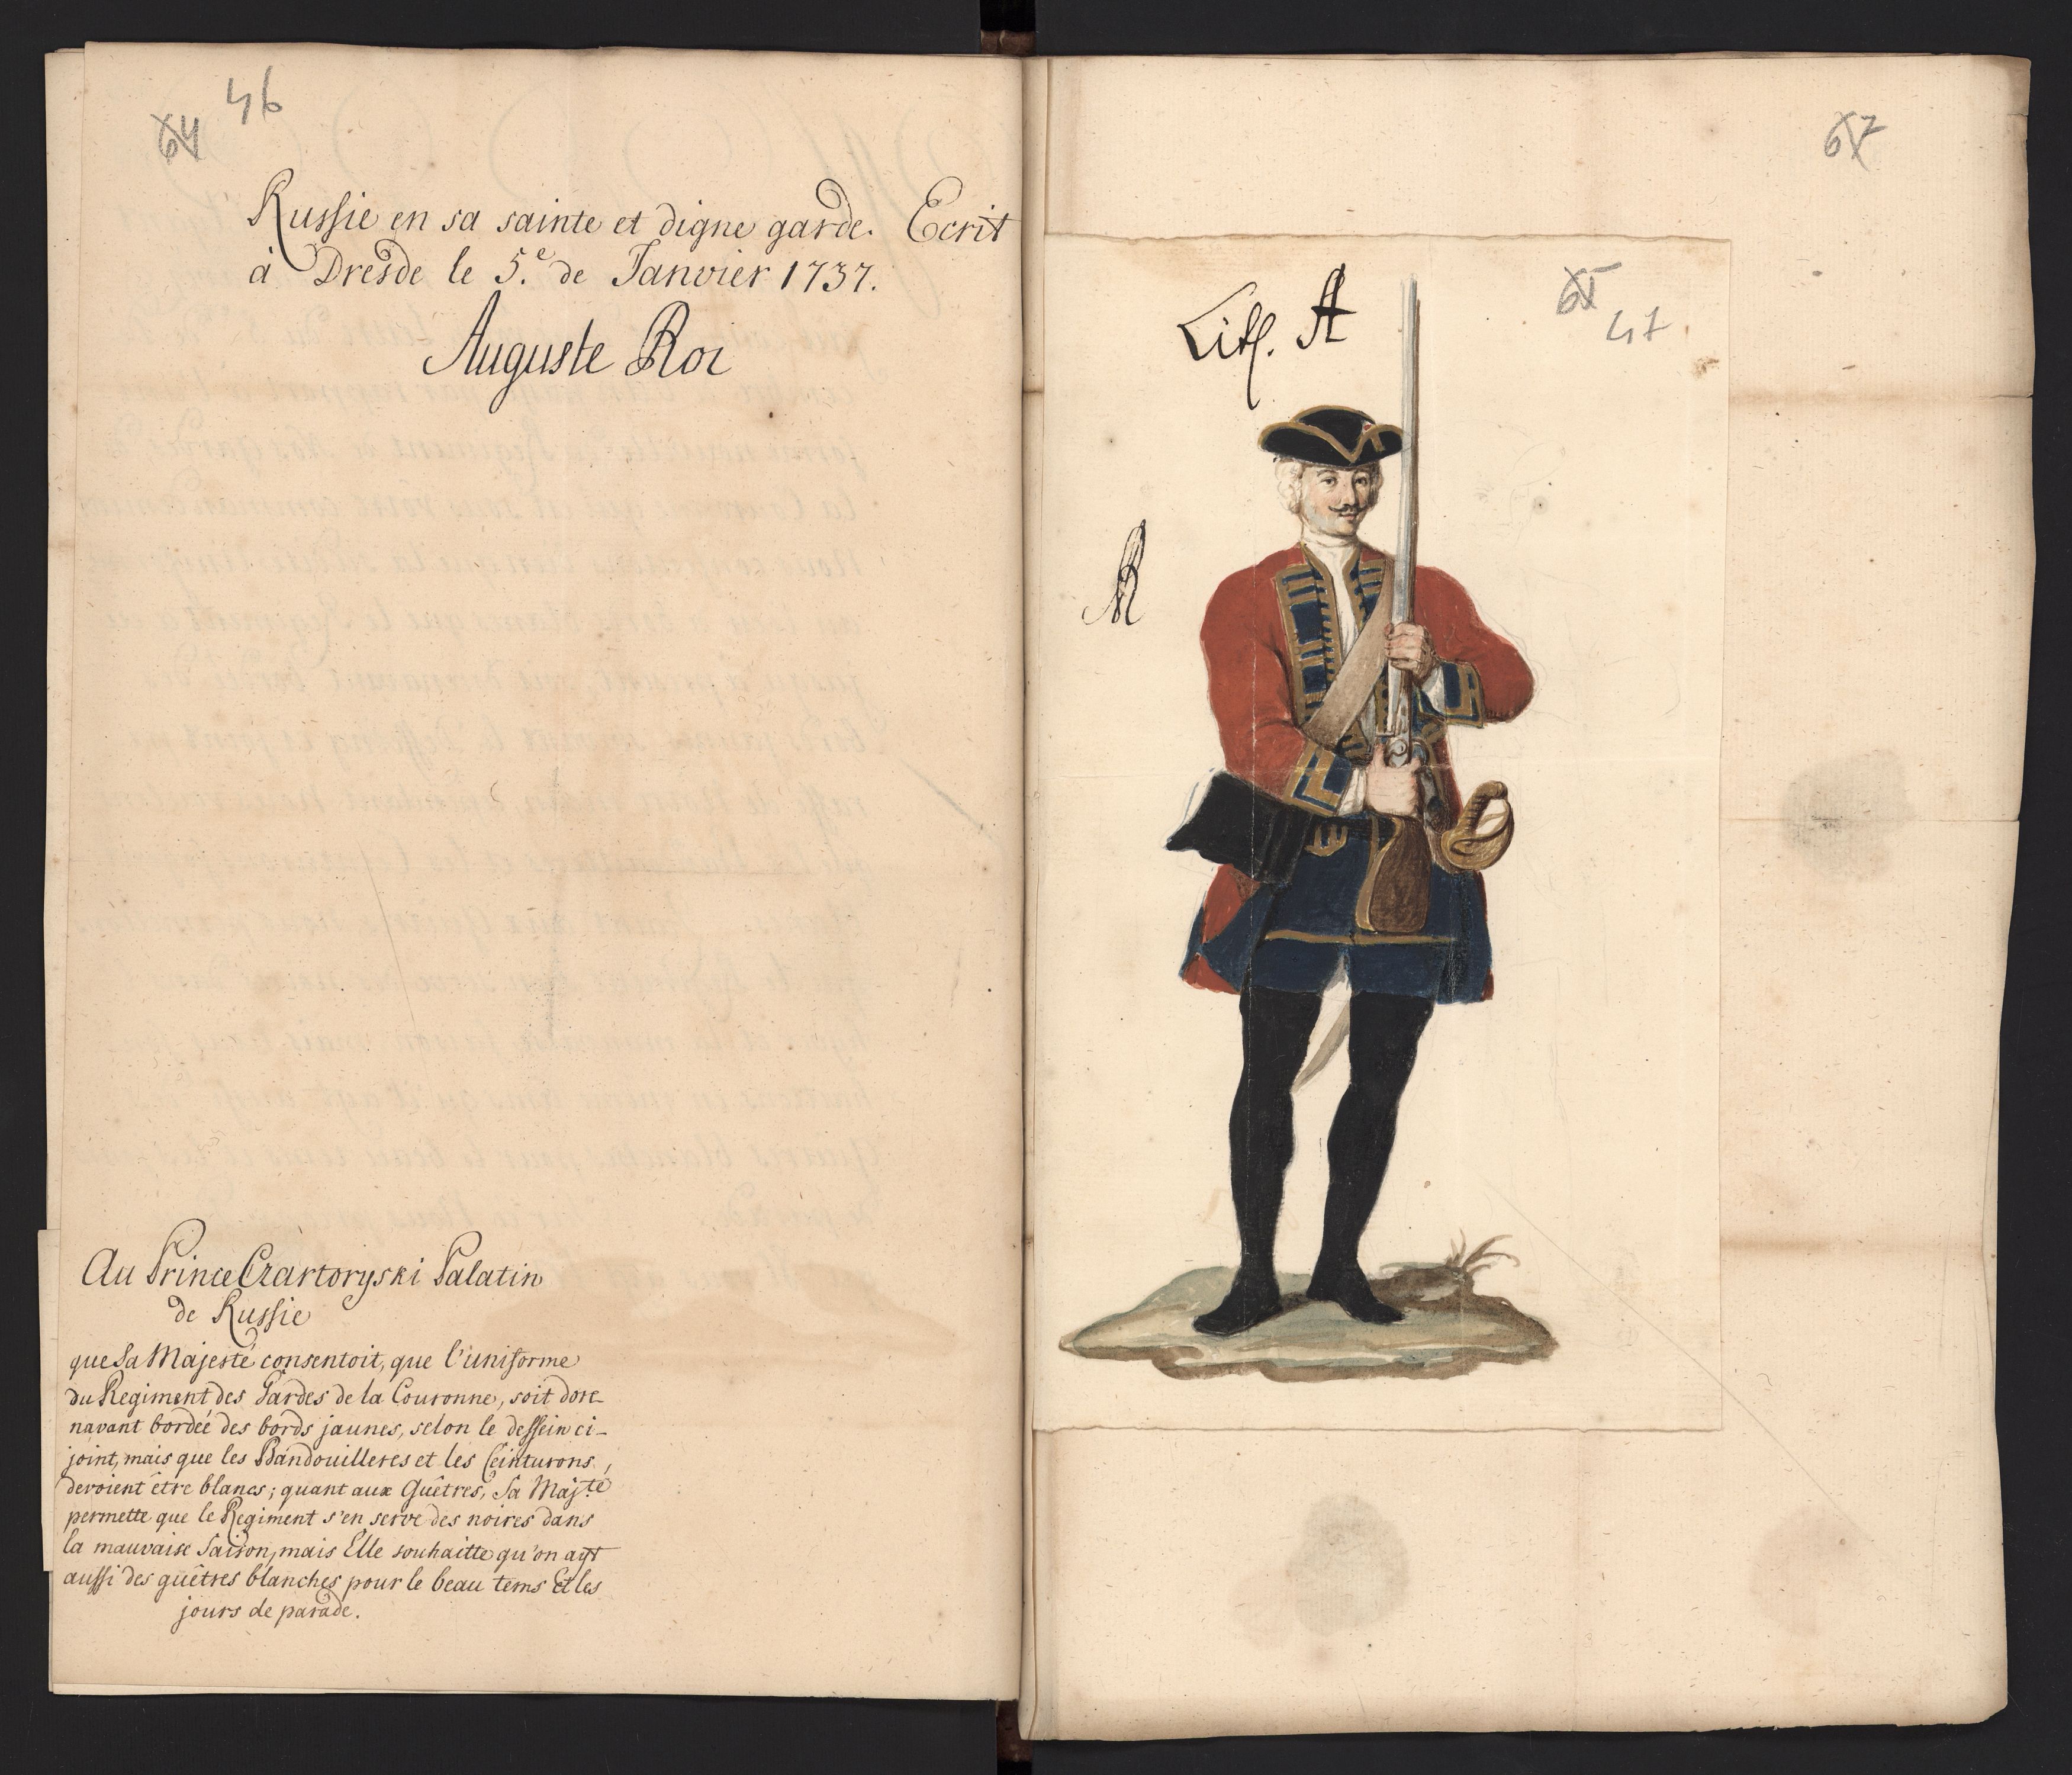 46
64
Russie en sa sainte et digne garde. Ecrit
à Dresde le 5.e de Janvier 1737.
Auguste Roi
Au Prince Czartoryski Palatin
de Russie
que Sa Majesté consentoit, que l'uniforme
du Regiment des Gardes de la Couronne, soit dore-
navant bordée des bords jaunes, selon le dessein ci-
joint, mais que les Bandouilleres et les Ceinturons,
devoient être blancs; quant aux Guêtres, Sa Majte
permette que le Regiment s'en serve des noires dans
la mauvaise Saison, mais Elle souhaitte qu'on ayt
aussi des guêtres blanches pour le beau tems Et les
jours de parade.
67
65
47
Litt. A